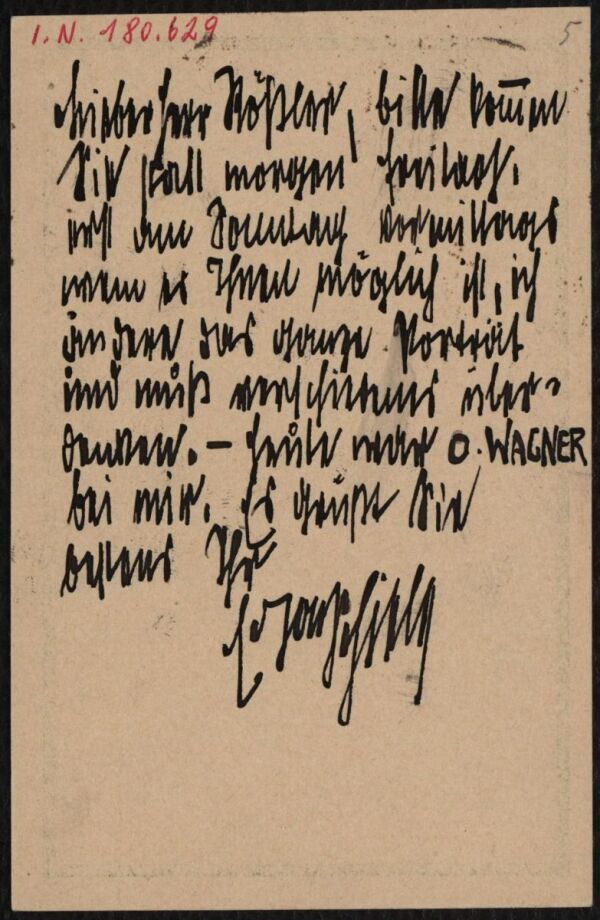 I.N. 180.629
5
Lieber Herr Rößler, bitte kom̅en
Sie statt morgen Freitag.
erst am Sonntag vormittags
wenn es Ihnen möglich ist, ich
ändere das ganze Porträt
und muß verschiedenes über-
denken. – Heute war O. WAGNER
bei mir. Es grüßt Sie
bestens Ihr
Egon Schiele